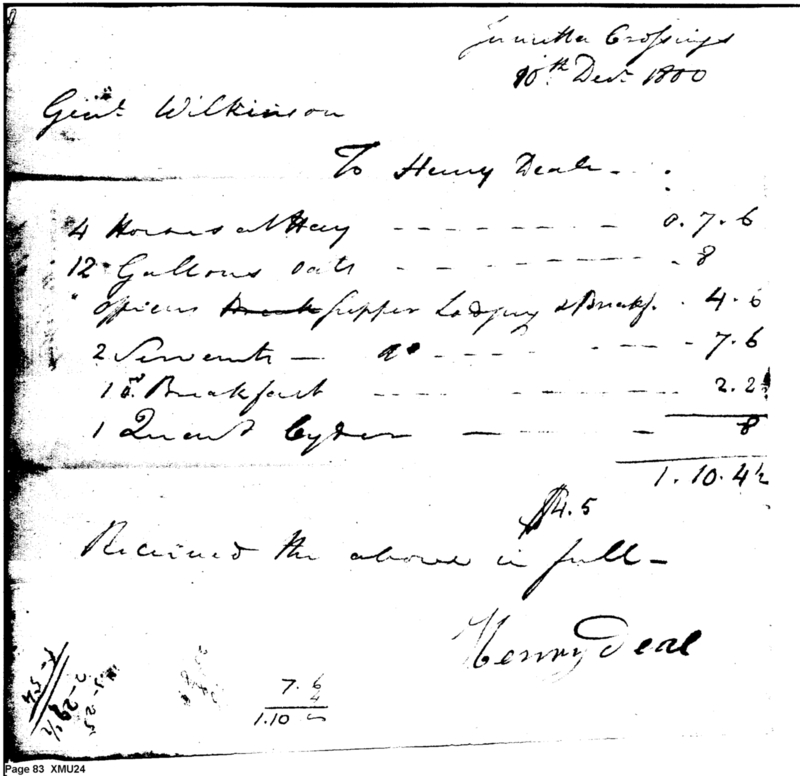 Juniatta Crossings
10th Decr 1800
Genl. Wilkinson
To Henry Deal
4 Horses at Hay 0.7.6
12 Gallons oats 8
officers Supper Lodging & Breakf. 4.6
2 Servants do 7.6
1 Breakfast 2.2½
1 Quart Cyder 8
1.10.4½
$4.5
Received the above in full
Henry Deal
7.6
4
1.10
Page 83 XMU24